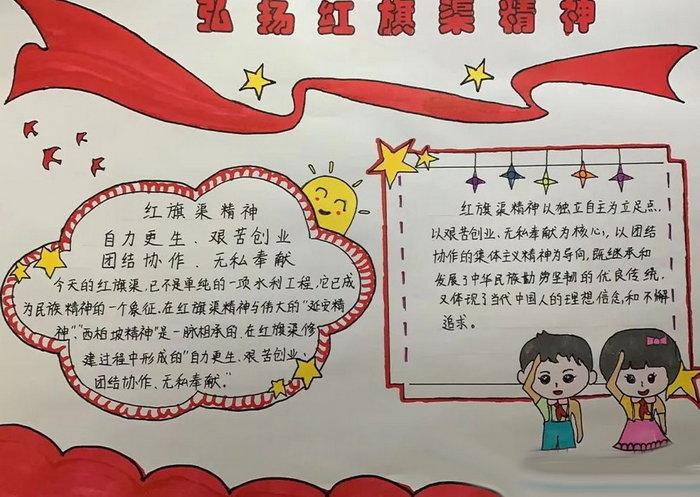 弘扬红旗渠精神
红旗渠精神
自力更生、艰苦创业
团结协作、无私奉献
今天的红旗渠,已不是单纯的一项水利工程,它已成
为民族精神的一个象征,在红旗渠精神与伟大的“延安精
神”、“西柏坡精神”是一脉相承的,在红旗渠修
建过程中形成的“自力更生、艰苦创业、
团结协作、无私奉献。”
红旗渠精神以独立自主为立足点,
以艰苦创业、无私奉献为核心,以团结
协作的集体主义精神为导向,既继承和
发展了中华民族勤劳坚韧的优良传统,
又体现了当代中国人的理想信念,和不懈
追求。